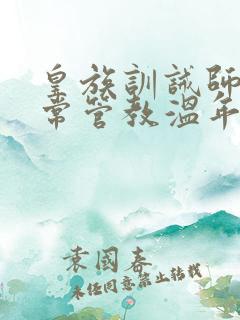 皇族訓誡師
常管教溫年
袁國春
未经同意禁止转载